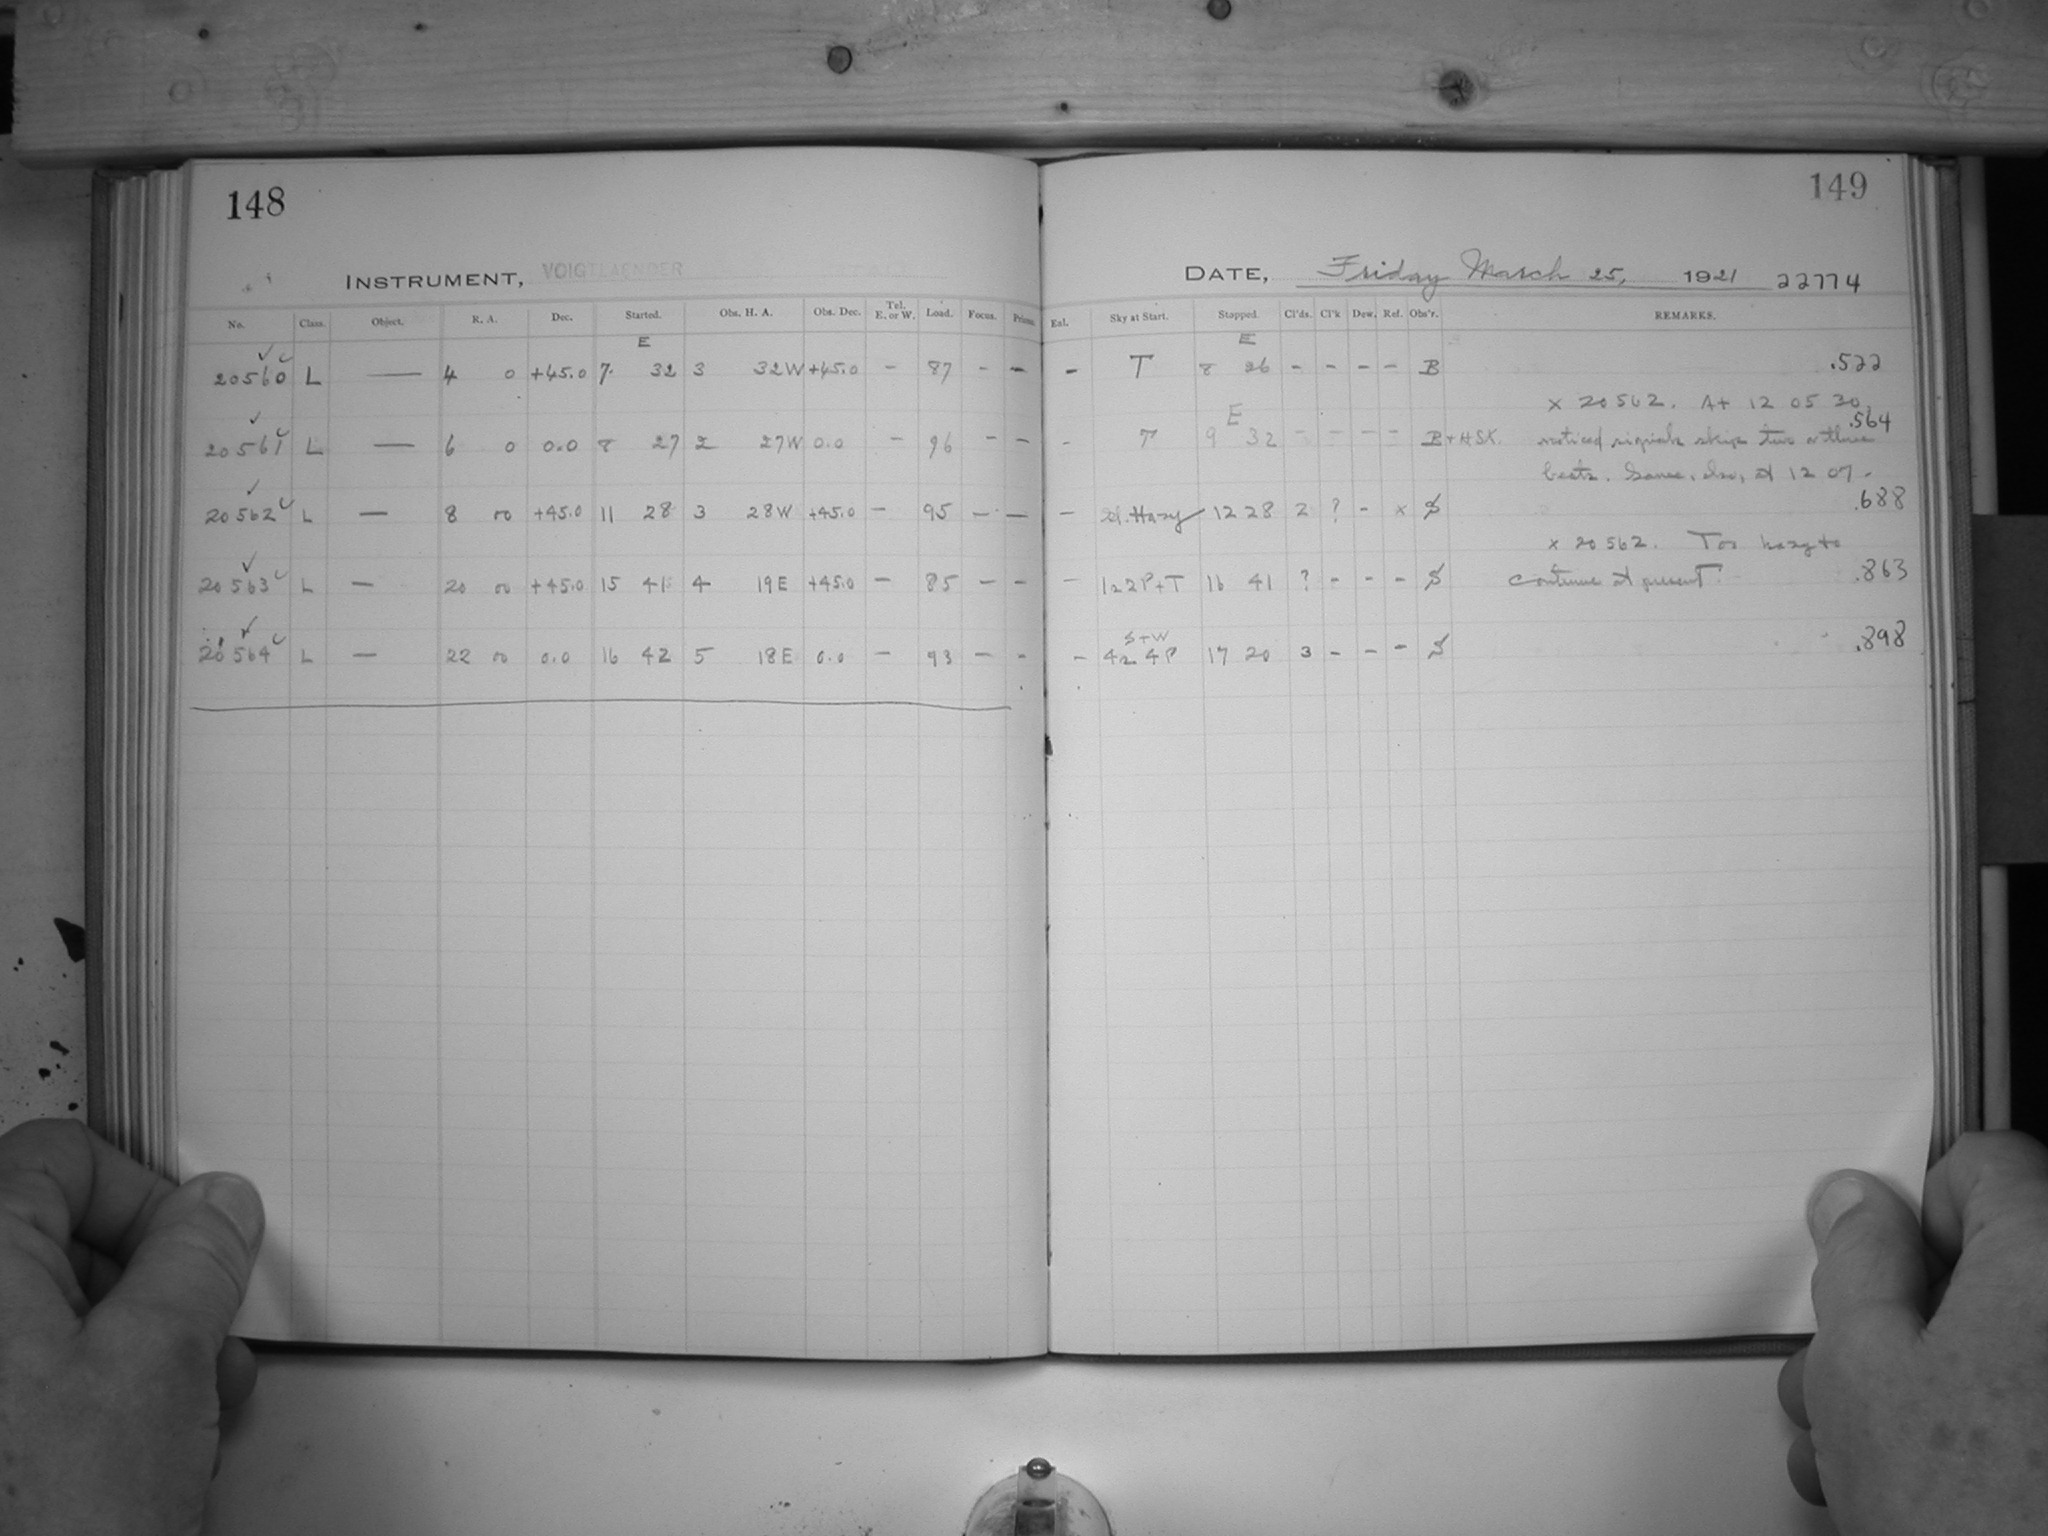 148
149
INSTRUMENT, VOIGTLAENDER
DATE, Friday March 25, 1921 22774
No. Class. Object. R. A. Dec. Started. Obs. H. A. Obs. Dec. Tel. E. or W. Load. Focus. Prisms. Enl. Sky at Start. Stopped. Cl'ds. Cl'k Dew. Ref. Obs'r. REMARKS.
E E
20560 L — 4 0 +45.0 7 32 3 32W +45.0 - 87 - - - T 8 26 - - - - B .522
x 20562. At 12 05 30
E
20561 L — 6 0 0.0 8 27 2 27W 0.0 - 96 - - - T 9 32 - - - - B+HSK. noticed signals skip two or three .564
beats. Same, also, at 12 07 -
20562 L — 8 00 +45.0 11 28 3 28W +45.0 - 95 - - - Hazy 12 28 2 ? - x S .688
x 20562. Too hazy to
20563 L — 20 00 +45.0 15 41 4 19E +45.0 - 85 - - - 1a2P+T 16 41 ? - - - S continue at present. .863
S+W
20564 L — 22 00 0.0 16 42 5 18E 0.0 - 93 - - - 4a4P 17 20 3 - - - S .898